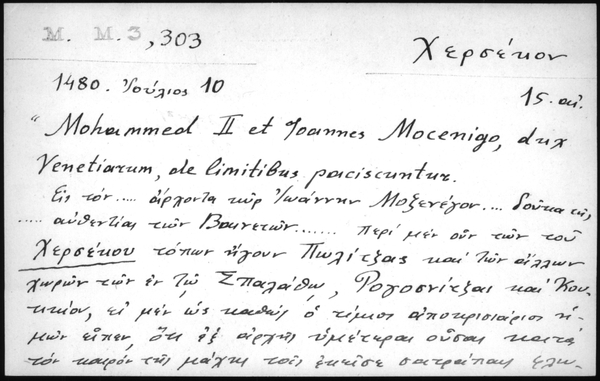 M. M. 3, 303
Χερσέκον
1480. Ἰούλιος 10
15. αἰ.
"Mohammed II et Joannes Mocenigo, dux
Venetiarum, de limitibus paciscuntur.
Εἰς τόν ..... ἄρχοντα κῦρ Ἰωάννην Μοζενέγον .... δοῦκα τῆς
..... αὐθεντίας τῶν Βενετῶν ...... Περί μέν οὖν τῶν τοῦ
Χερσέκου τόπων ἤγουν Πωλίτζας καί τῶν ἄλλων
χωρῶν τῶν ἐν τῷ Σπαλάθῳ, Ρογοσνίτζας καί Κου-
τκίου, εἰ μέν ὡς καθώς ὁ τίμιος ἀποκρισιάριος ἡ-
μῶν εἶπεν, ὅτι ἐξ ἀρχῆς ὑμέτεραι οὖσαι κατά
τόν καιρόν τῆς μάχης τοῖς ἐκεῖσε σατράπαις